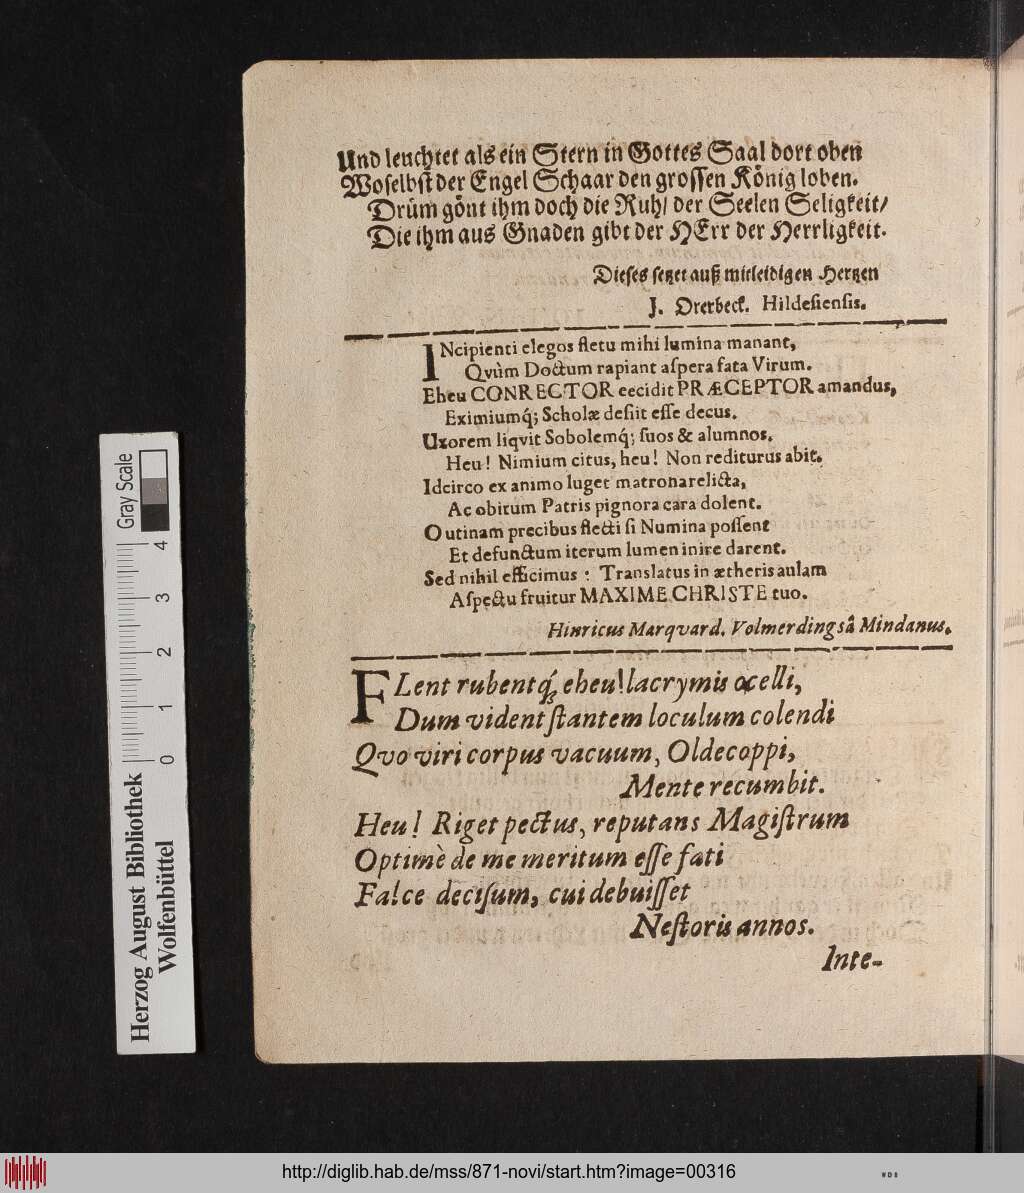 Und leuchtet als ein Stern in Gottes Saal dort oben
Woselbst der Engel Schaar den grossen König loben.
Drüm gönt ihm doch die Ruh/ der Seelen Seligkeit/
Die ihm aus Gnaden gibt der HErr der Herrligkeit.
Dieses setzet auß mitleidigen Hertzen
J. Drerbeck. Hildesiensis.
INcipienti elegos fletu mihi lumina manant,
Qvùm Doctum rapiant aſpera fata Virum.
Eheu CONRECTOR eecidit PRÆCEPTOR amandus,
Eximiumq́; Scholæ deſiit eſſe decus.
Uxorem liqvit Sobolemq́; ſuos & alumnos.
Heu! Nimium citus, heu! Non rediturus abit.
Idcirco ex animo luget matrona relicta,
Ac obitum Patris pignora cara dolent.
O utinam precibus flecti ſi Numina poſſent
Et defunctum iterum lumen inire darent.
Sed nihil efficimus: Translatus in ætheris aulam
Aſpectu fruitur MAXIME CHRISTE tuo.
Hinricus Marqvard. Volmerdingsâ Mindanus.
FLent rubentq́; eheu! lacrymis ocelli,
Dum vident ſtantem loculum colendi
Qvo viri corpus vacuum, Oldecoppi,
Mente recumbit.
Heu! Riget pectus, reputans Magiſtrum
Optimè de me meritum eſſe fati
Falce deciſum, cui debuiſſet
Neſtoris annos.
Inte-
Gray Scale
4
3
2
1
0
Herzog August Bibliothek
Wolfenbüttel
http://diglib.hab.de/mss/871-novi/start.htm?image=00316
WDB